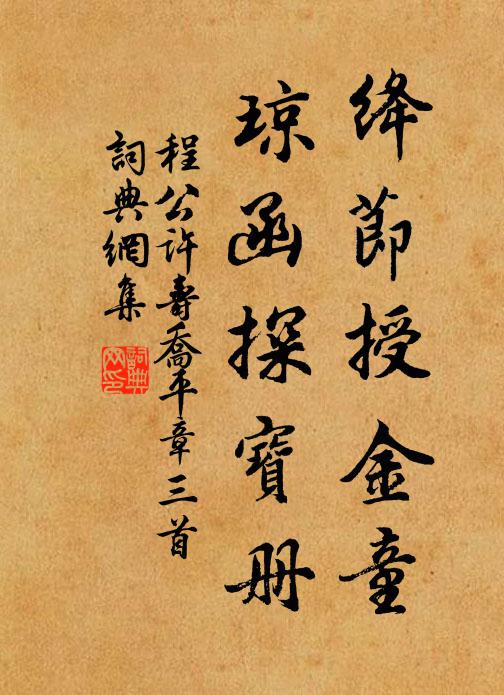 绛節授金童
琼函探寶册
程公許壽喬平章三首
詞典網集
詞典網印